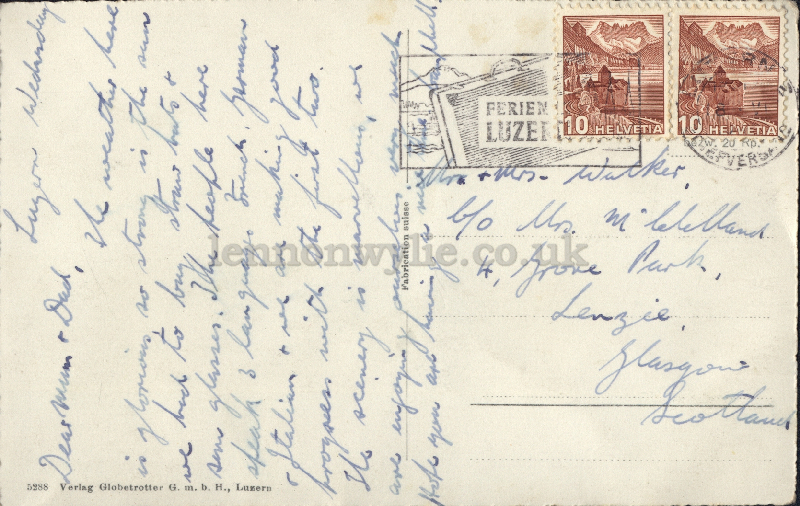 Luzern Wednesday
Dear Mum & Dad,
The weather here
is glorious so strong is the sun
we had to buy straw hats &
sun glasses. The people here
speak 3 languages French, German
& Italian & we are making good
progress with the first two.
The scenery is marvellous, we
are enjoying ourselves very much
Hope you are having a nice
5288 Verlag Globetrotter G. m. b. H., Luzern
Fabrication suisse
FERIEN
LUZERN
10 HELVETIA
10 HELVETIA
zw. 20 Rp.
BRIEFVERSAND
Mr. & Mrs. Walker,
c/o Mrs. McLelland
4, Grove Park,
Lenzie,
Glasgow
Scotland
lennonwylie.co.uk